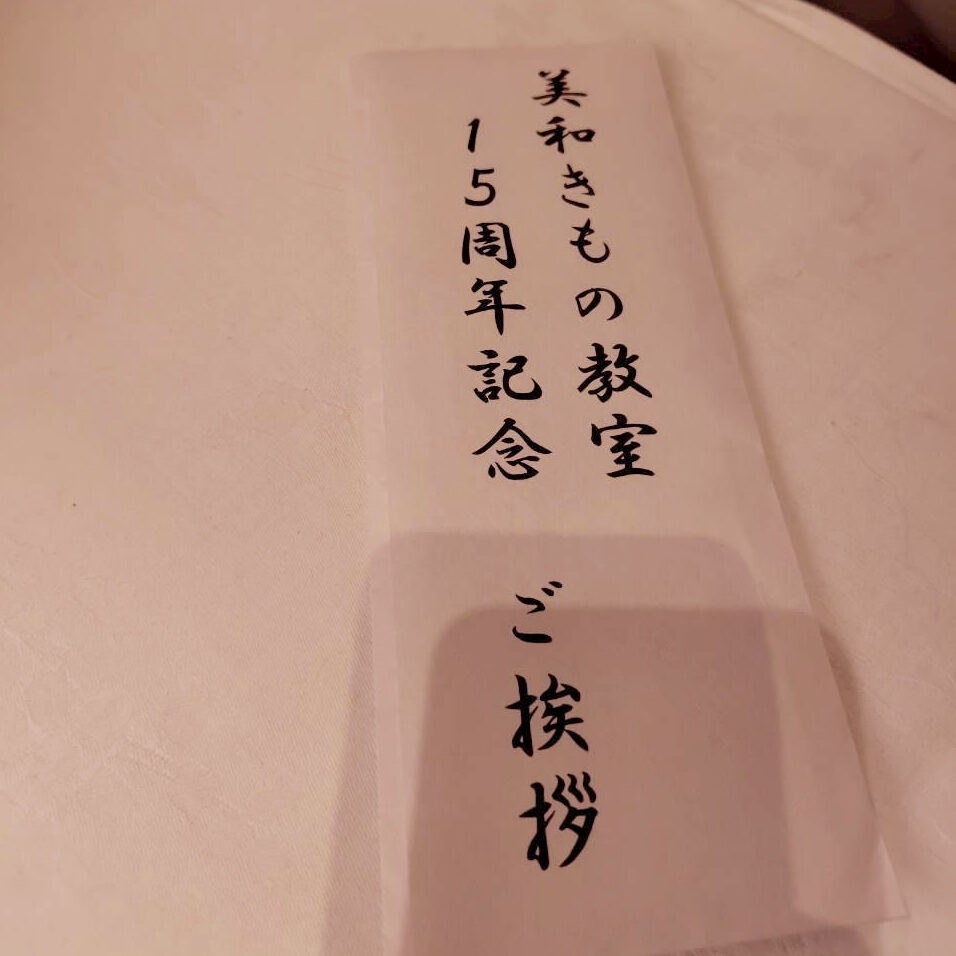 美和きもの教室
15周年記念
ご挨拶